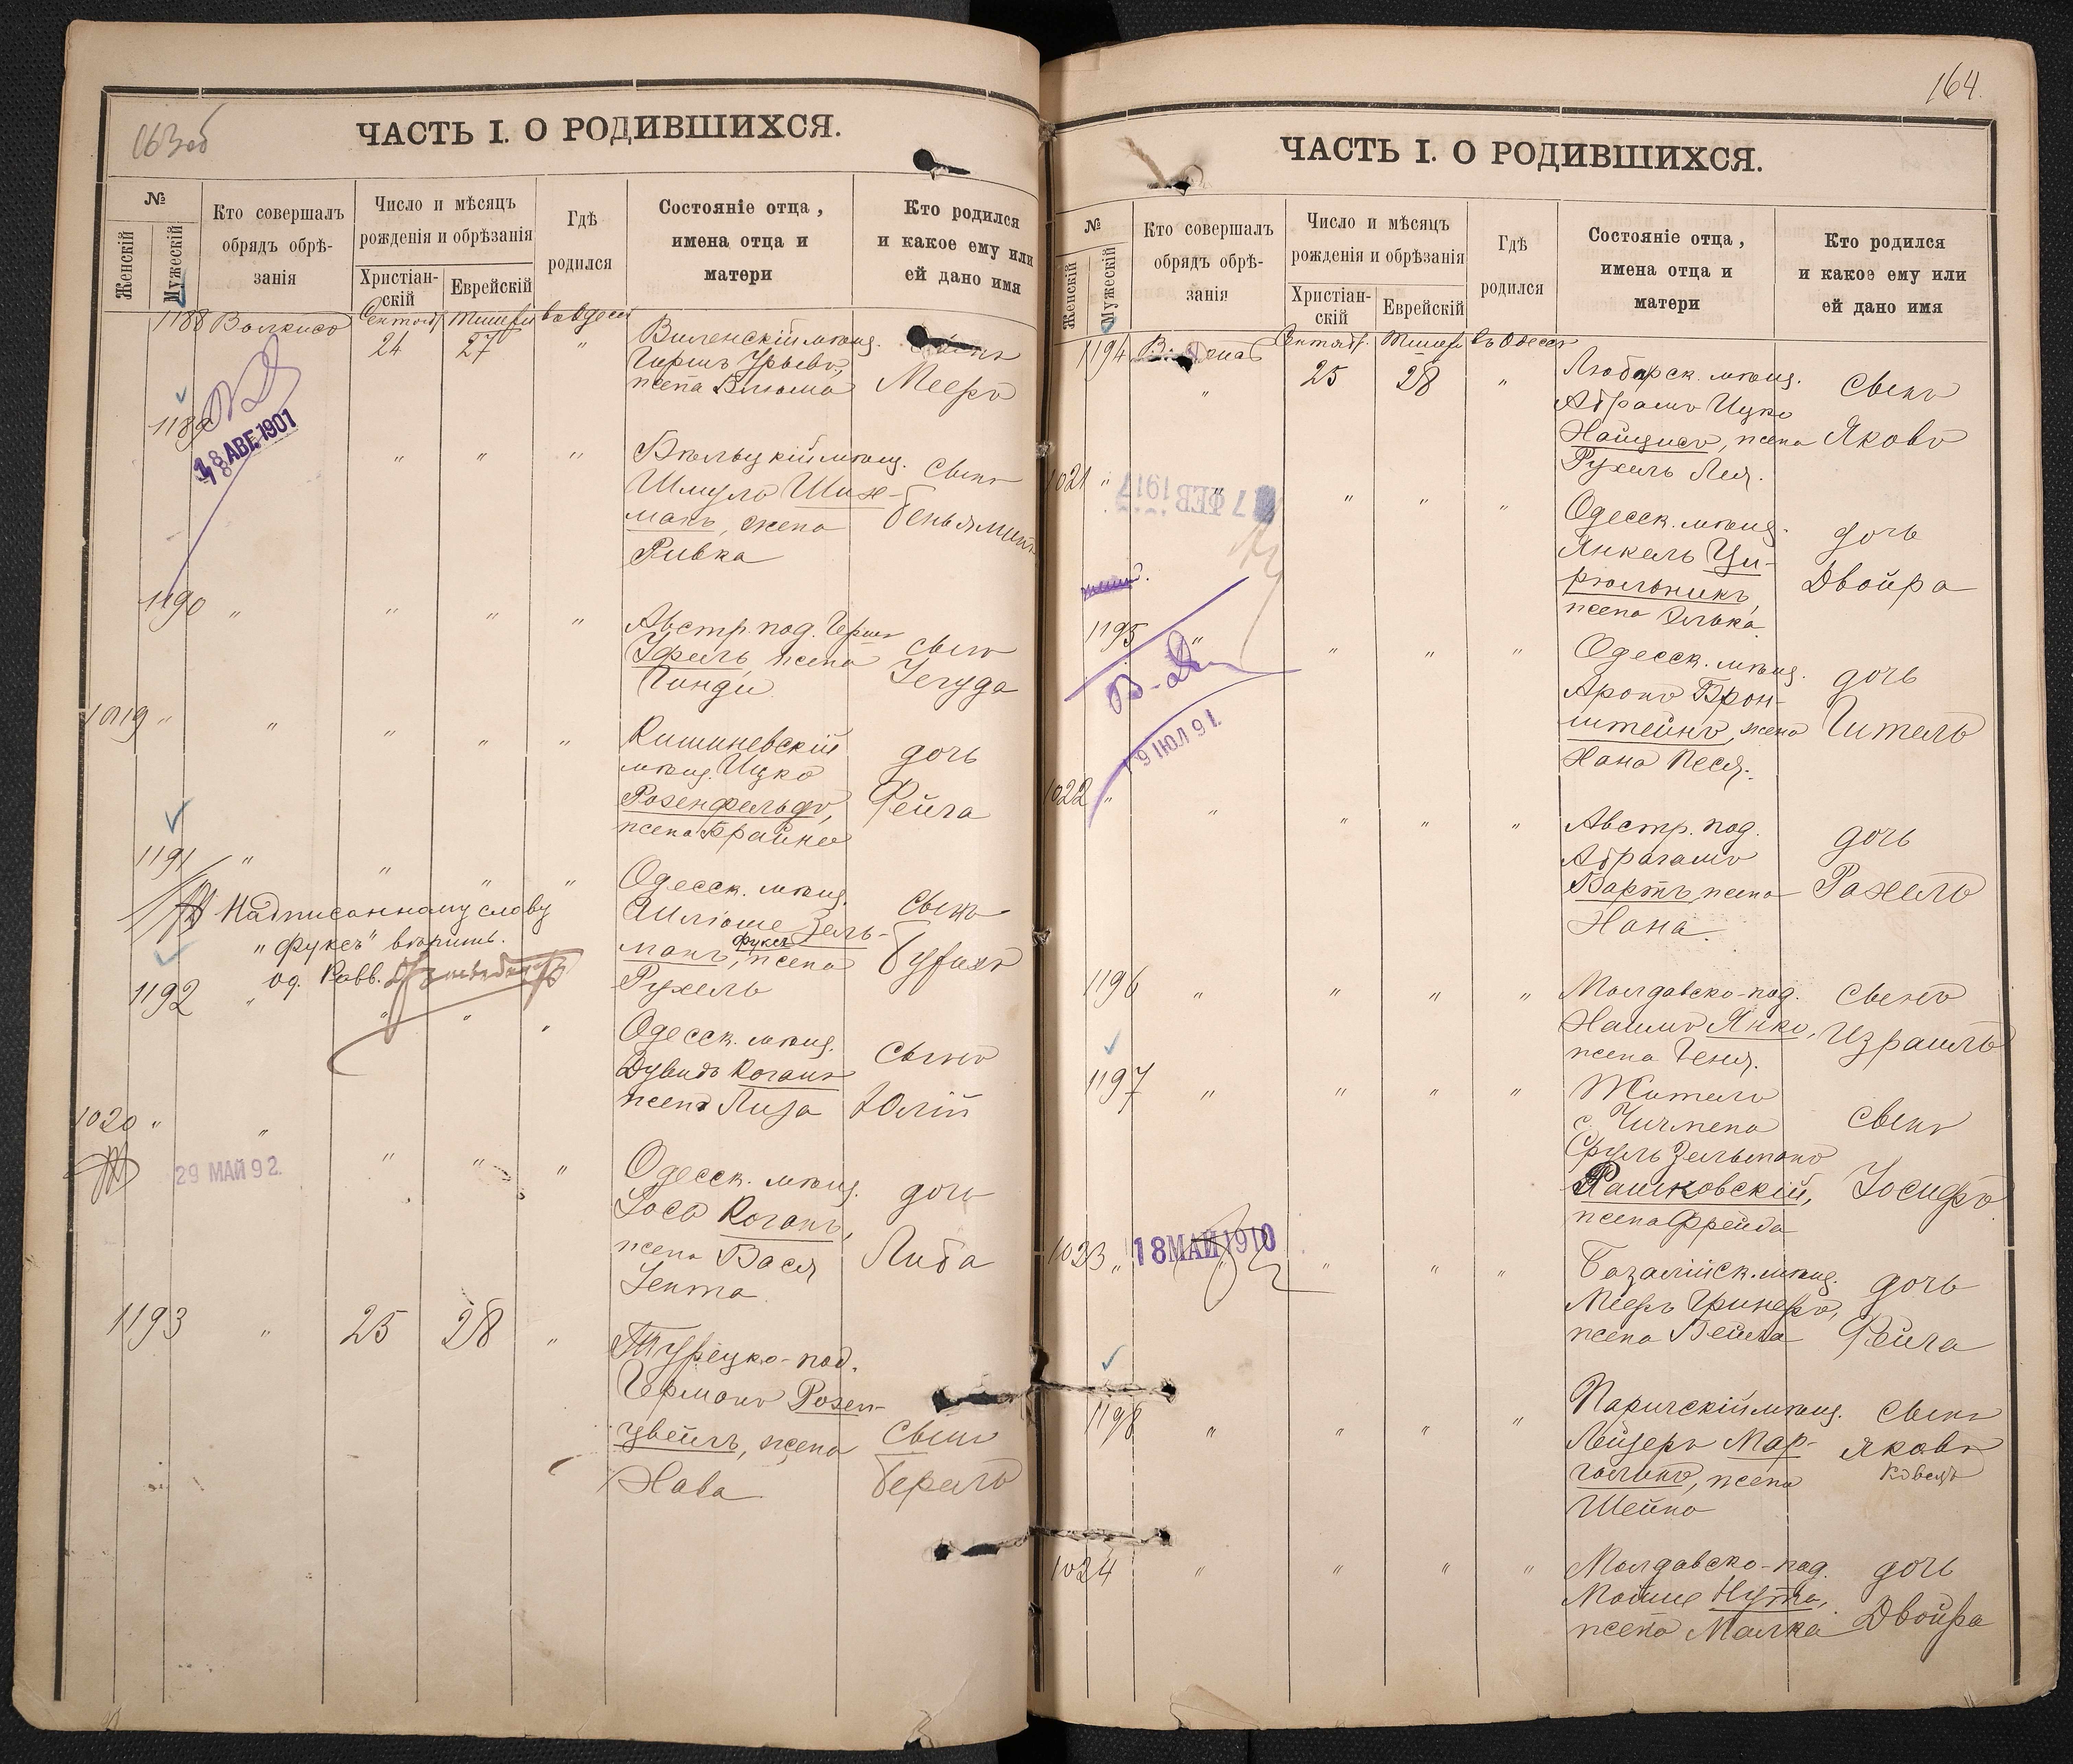 163 об
ЧАСТЬ I. О РОДИВШИХСЯ.
№
Женскій
Мужескій
Кто совершалъ
обрядъ обрѣ-
занія
Число и мѣсяцъ
рожденія и обрѣзанія
Христіан-
скій
Еврейскій
Гдѣ
родился
Состояніе отца,
имена отца и
матери
Кто родился
и какое ему или
ей дано имя
1188
Сентяб. Тишри въ Одессѣ
24 27 "
Виленскій мѣщ.
Гиршъ Урьевъ,
жена Блюма
сынъ
Мееръ
18 АВГ. 1901
1189 " " "
Бѣльцкій мѣщ.
Шмуль Ших-
манъ, жена
Ривка
сынъ
Беньяминъ
1190 " " " "
Австр. под. Герш
жена
сынъ
Іегуда
1019 " " " " "
Кишиневскій
мѣщ. Ицко
Розенфельдъ,
жена Брайна
дочь
Фейга
1191 " " " "
Надписанному слову
"Фуксъ" вѣрить.
Од. Равв.
Одесск. мѣщ.
Шліоме Зель-
манъ Фуксъ, жена
Рухель
сынъ
1192 " " " "
Одесск. мѣщ.
Дувидъ Коганъ
жена Лиза
сынъ
Юлій
1020 " " " " "
29 МАЙ 92.
Одесск. мѣщ.
Іосъ Коганъ,
жена Бася
Іента
дочь
Либа
1193 " 25 28 "
Турецко-под.
Германъ Розен-
цвейгъ, жена
Хава
сынъ
Берель
164.
ЧАСТЬ I. О РОДИВШИХСЯ.
№
Женскій
Мужескій
Кто совершалъ
обрядъ обрѣ-
занія
Число и мѣсяцъ
рожденія и обрѣзанія
Христіан-
скій
Еврейскій
Гдѣ
родился
Состояніе отца,
имена отца и
матери
Кто родился
и какое ему или
ей дано имя
1194
Сентяб. Тишри въ Одессѣ
" 25 28 "
Любарск. мѣщ.
Абрамъ Ицко
жена
Рухель Лея.
сынъ
Яковъ
1021 " " " " "
7 ФЕВ 1917
Одесск. мѣщ.
Янкель Ци-
рюльникъ,
жена Элька.
дочь
Двойра
1195 " " " "
19 ІЮЛ 91.
Одесск. мѣщ.
Аронъ Брон-
штейнъ, жена
Хана Песя.
дочь
Гитель
1022 " " " " "
Австр. под.
Абрагамъ
Бартъ, жена
Хана.
дочь
Рахель
1196 " " " "
Молдавско-под.
Хаимъ Янко,
жена Геня.
сынъ
Израиль
1197 " " " "
Житель
с. Чичмена
Сруль Зельманъ
Рашковскій,
жена Фрейда
сынъ
Іосифъ
1023 " " " "
18 МАЙ 1910
Базалійск. мѣщ.
Мееръ Гринеръ,
жена Бейла
дочь
Фейга
1198 " " " "
Паричскій мѣщ.
Лейзеръ Мар-
голинъ, жена
Шейна
сынъ
Яковъ
1024 " " " "
Молдавско-под.
Мойше Нута,
жена Малка
дочь
Двойра